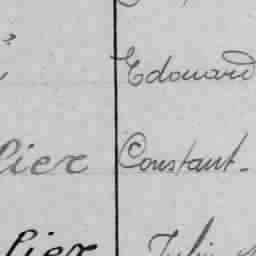 Edouard
lier Constant-
lier